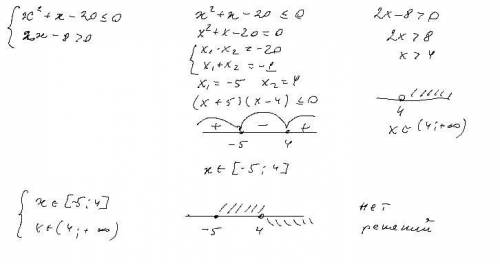 { x² + x - 20 ≤ 0
2x - 8 > 0
x² + x - 20 ≤ 0
x² + x - 20 = 0
{ x₁ · x₂ = -20
x₁ + x₂ = -1
x₁ = -5 x₂ = 4
(x + 5)(x - 4) ≤ 0
+ - +
-5 4
x ∈ [-5; 4]
2x - 8 > 0
2x > 8
x > 4
4
x ∈ (4; +∞)
{ x ∈ [-5; 4]
x ∈ (4; +∞)
-5 4
нет
решений